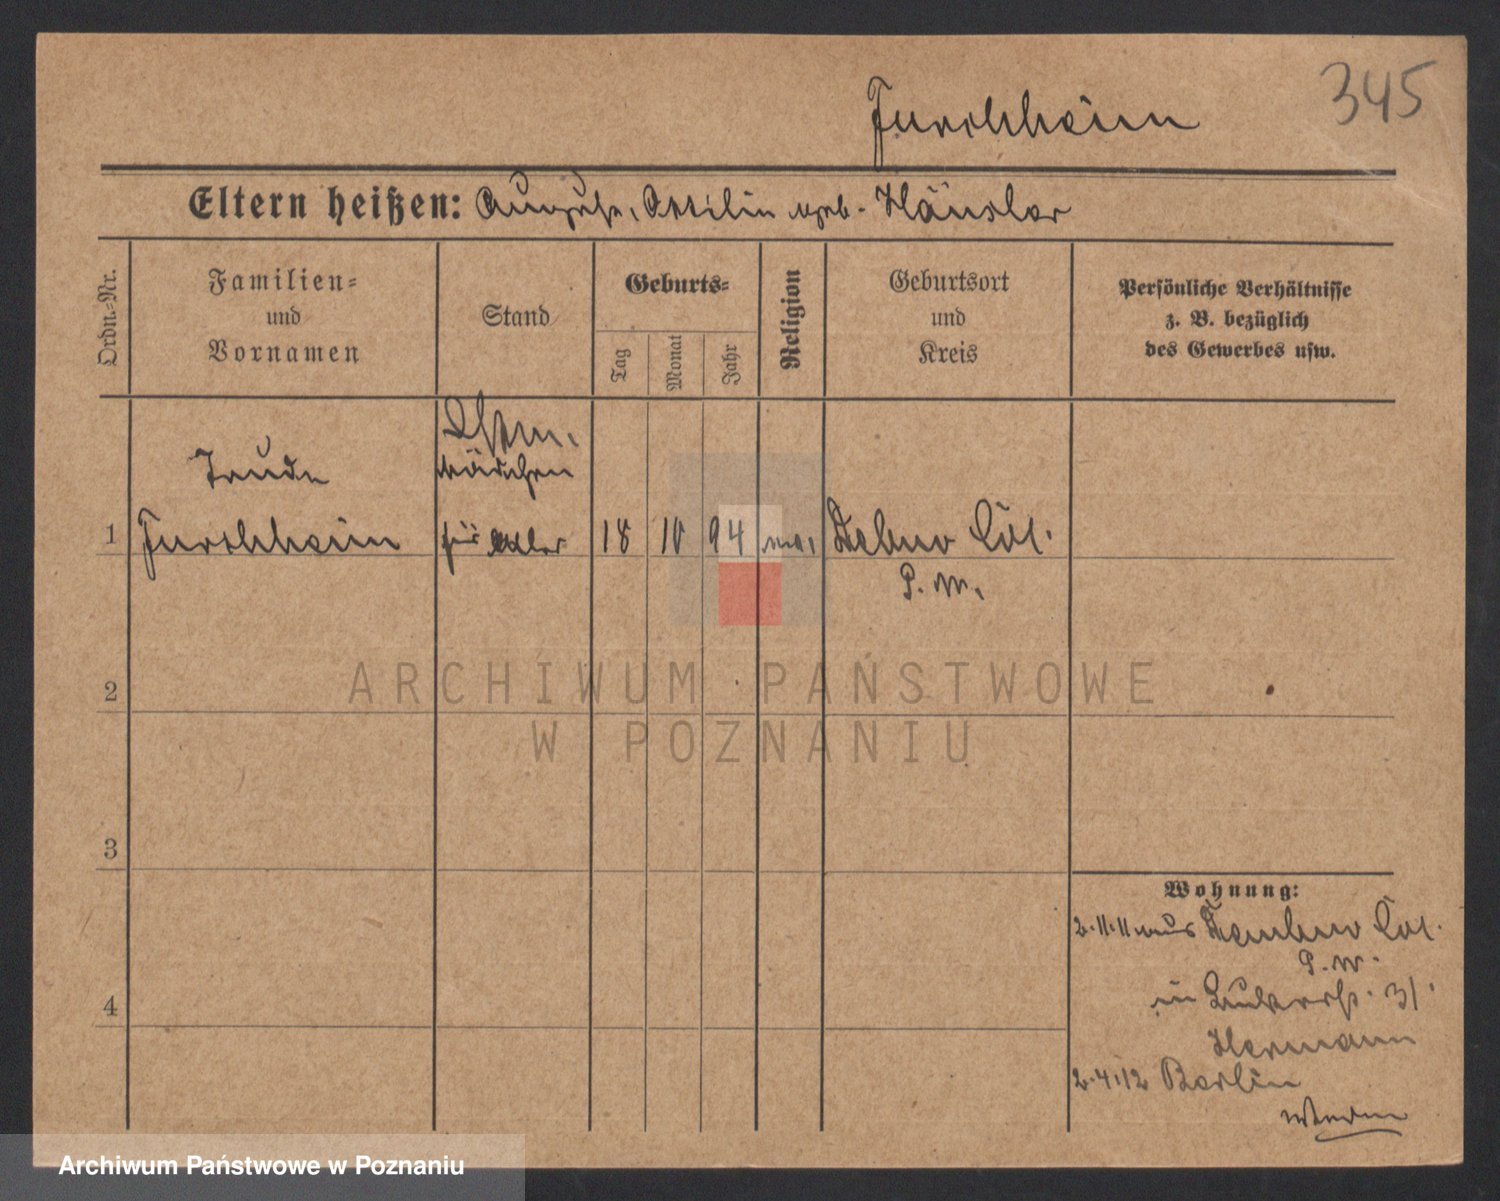 345
Furchheim
Eltern heißen: August, Ottilie geb. Häusler
Ordn.=Nr.
Familien=
und
Vornamen
Stand
Geburts=
Tag
Monat
Jahr
Religion
Geburtsort
und
Kreis
Persönliche Verhältnisse
z. B. bezüglich
des Gewerbes usw.
Trude
mädchen
1 Furchheim für Alles 18 10 94 Col.
P. M.
2
3
4
Wohnung:
2.11.11 aus Col.
P. M.
in 31
Hermann
2.4.12 Berlin
ARCHIWUM PAŃSTWOWE
W POZNANIU
Archiwum Państwowe w Poznaniu